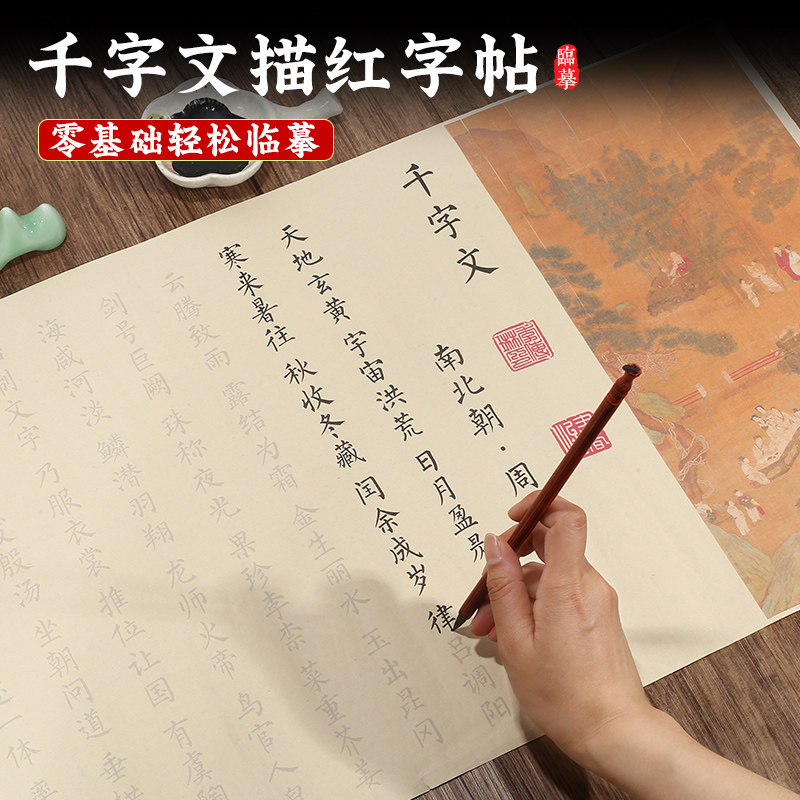 千字文描红字帖
臨摹
零基础轻松临摹
千字文
南北朝·周
天地玄黄 宇宙洪荒 日月盈昃
寒来暑往 秋收冬藏 闰余成岁 律吕调阳
云腾致雨 露结为霜 金生丽水 玉出昆冈
剑号巨阙 珠称夜光 果珍李柰 菜重芥姜
海咸河淡 鳞潜羽翔 龙师火帝 鸟官人
制文字 乃服衣裳 推位让国 有虞陶
发殷汤 坐朝问道 垂拱
一体 率